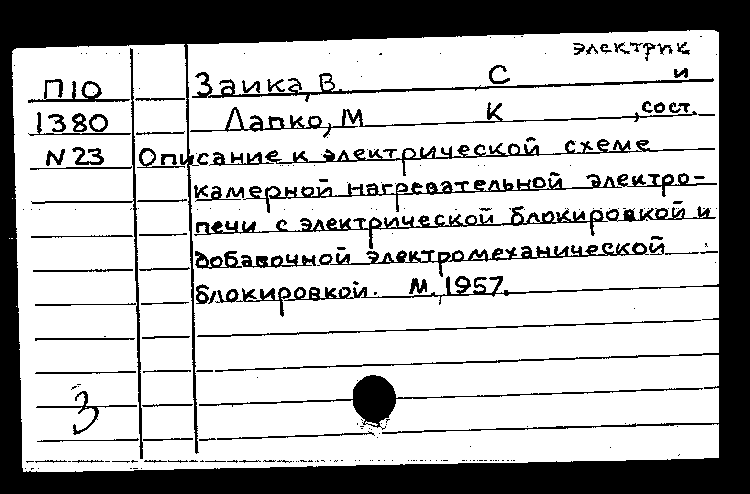 электрик
П10 Заика, В. С и
1380 Лапко, М К , сост.
N23 Описание к электрической схеме
камерной нагревательной электро-
печи с электрической блокировкой и
добавочной электромеханической
блокировкой. М., 1957.
3